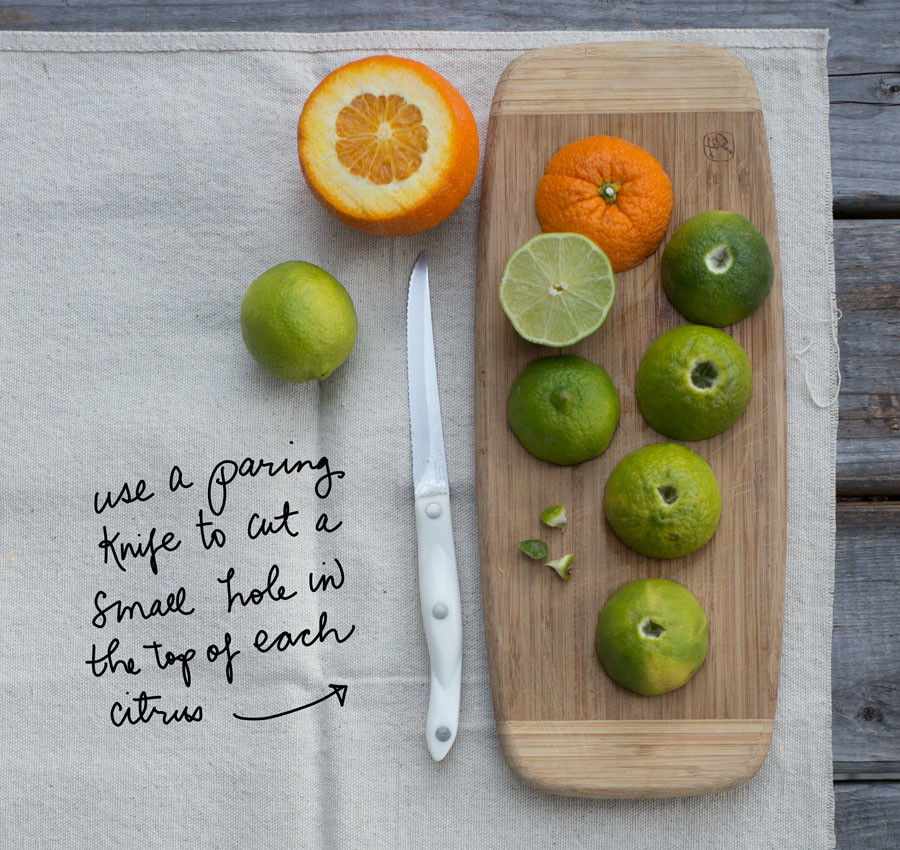 use a paring
knife to cut a
small hole in
the top of each
citrus